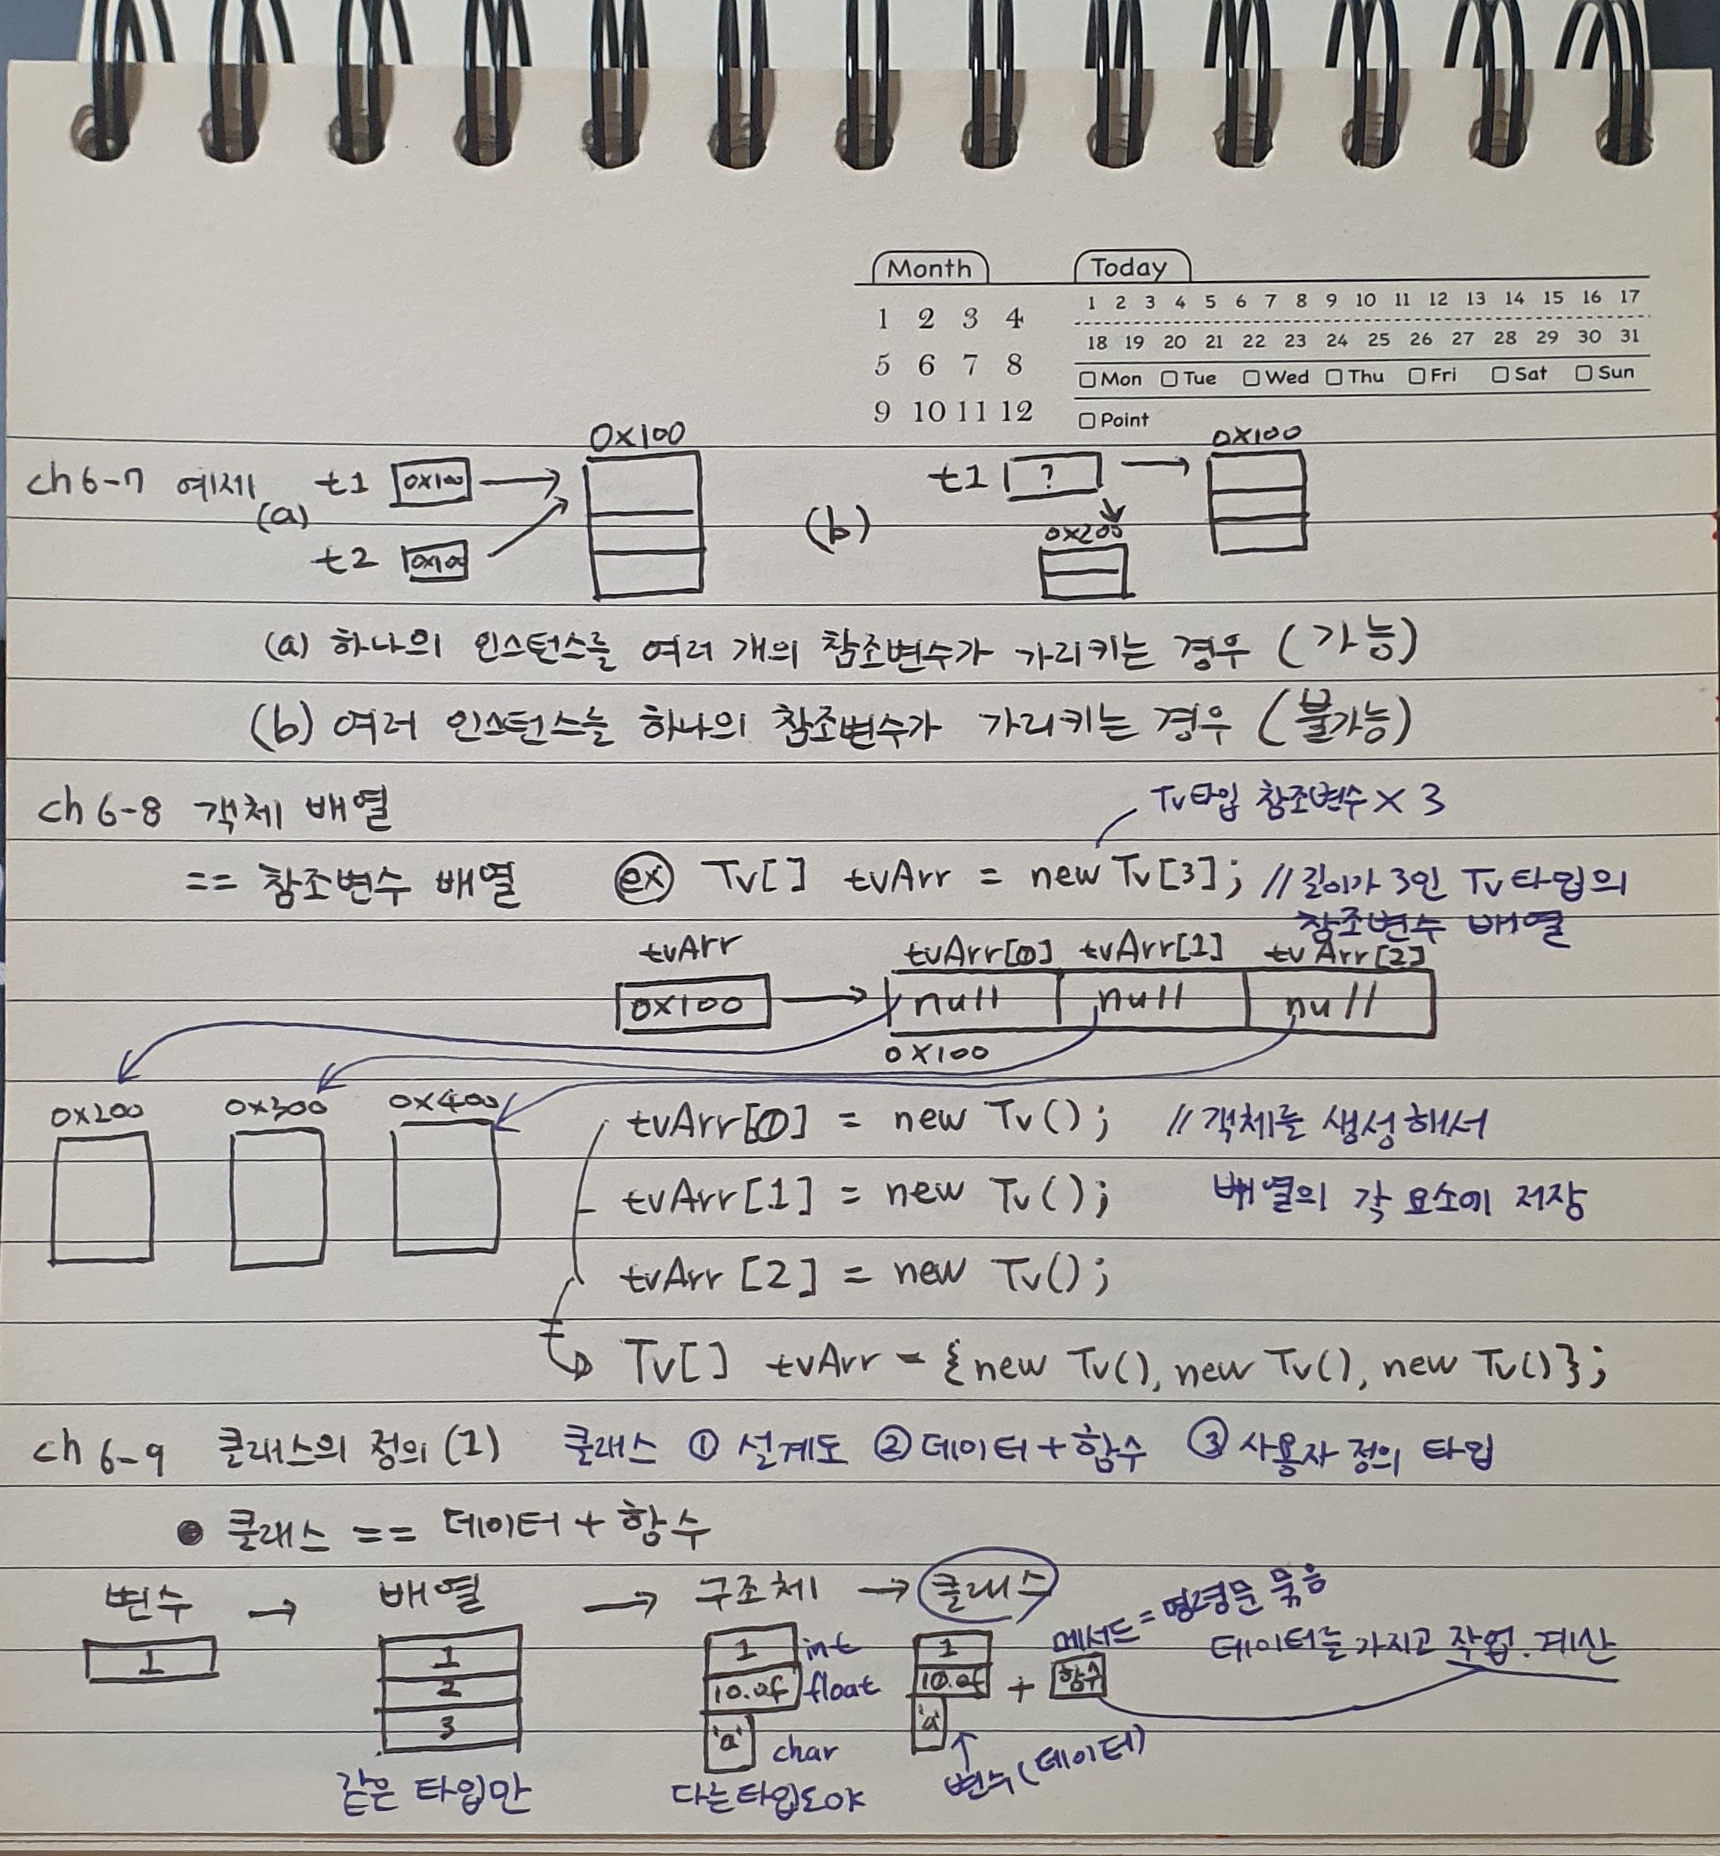 Month Today
1 2 3 4
5 6 7 8
9 10 11 12
1 2 3 4 5 6 7 8 9 10 11 12 13 14 15 16 17
18 19 20 21 22 23 24 25 26 27 28 29 30 31
Mon Tue Wed Thu Fri Sat Sun
Point
ch 6-7 예제
(a)
0x100
t1 0x100
t2 0x100
(b)
t1 ? 0x100
0x200
(a) 하나의 인스턴스를 여러 개의 참조변수가 가리키는 경우 (가능)
(b) 여러 인스턴스를 하나의 참조변수가 가리키는 경우 (불가능)
ch 6-8 객체 배열
Tv타입 참조변수 × 3
== 참조변수 배열 ex Tv[] tvArr = new Tv[3]; // 길이가 3인 Tv타입의
참조변수 배열
tvArr tvArr[0] tvArr[1] tvArr[2]
0x100 null null null
0x100
0x200 0x300 0x400
tvArr[0] = new Tv(); // 객체를 생성해서
tvArr[1] = new Tv(); 배열의 각 요소에 저장
tvArr[2] = new Tv();
Tv[] tvArr = {new Tv(), new Tv(), new Tv()};
ch 6-9 클래스의 정의 (1) 클래스 ① 설계도 ② 데이터 + 함수 ③ 사용자 정의 타입
● 클래스 == 데이터 + 함수
변수 → 배열 → 구조체 → 클래스
메서드 = 명령문 묶음
데이터를 가지고 작업. 계산
1
1
2
3
같은 타입만
1 int
10.0f float
'a' char
다른타입도OK
1
10.0f + 함수
'a'
변수(데이터)